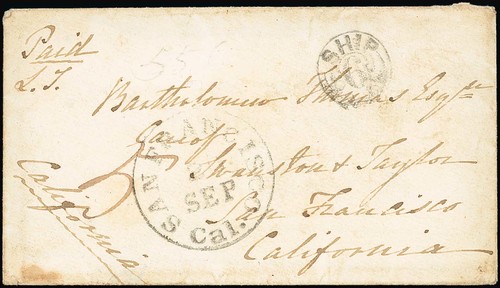 Paid
L.T.
SHIP
6
Bartholomew Thomas Esqre
Care of
Swanston & Taylor
San Francisco
California
SAN FRANCISCO
SEP
Cal.
California